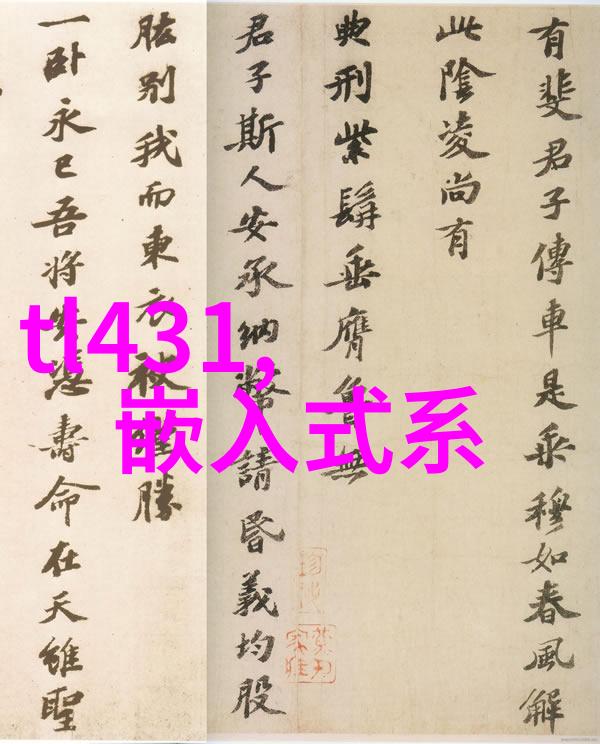 有斐君子傳車是乘穆如春風解
此陰凌尚有
典刑紫髯垂膺魯無
君子斯人安承納幣請昏義均股
肱別我而東衣袂僅勝
一卧永已吾將安憑壽命在天雖聖
tl431,
嵌入式系